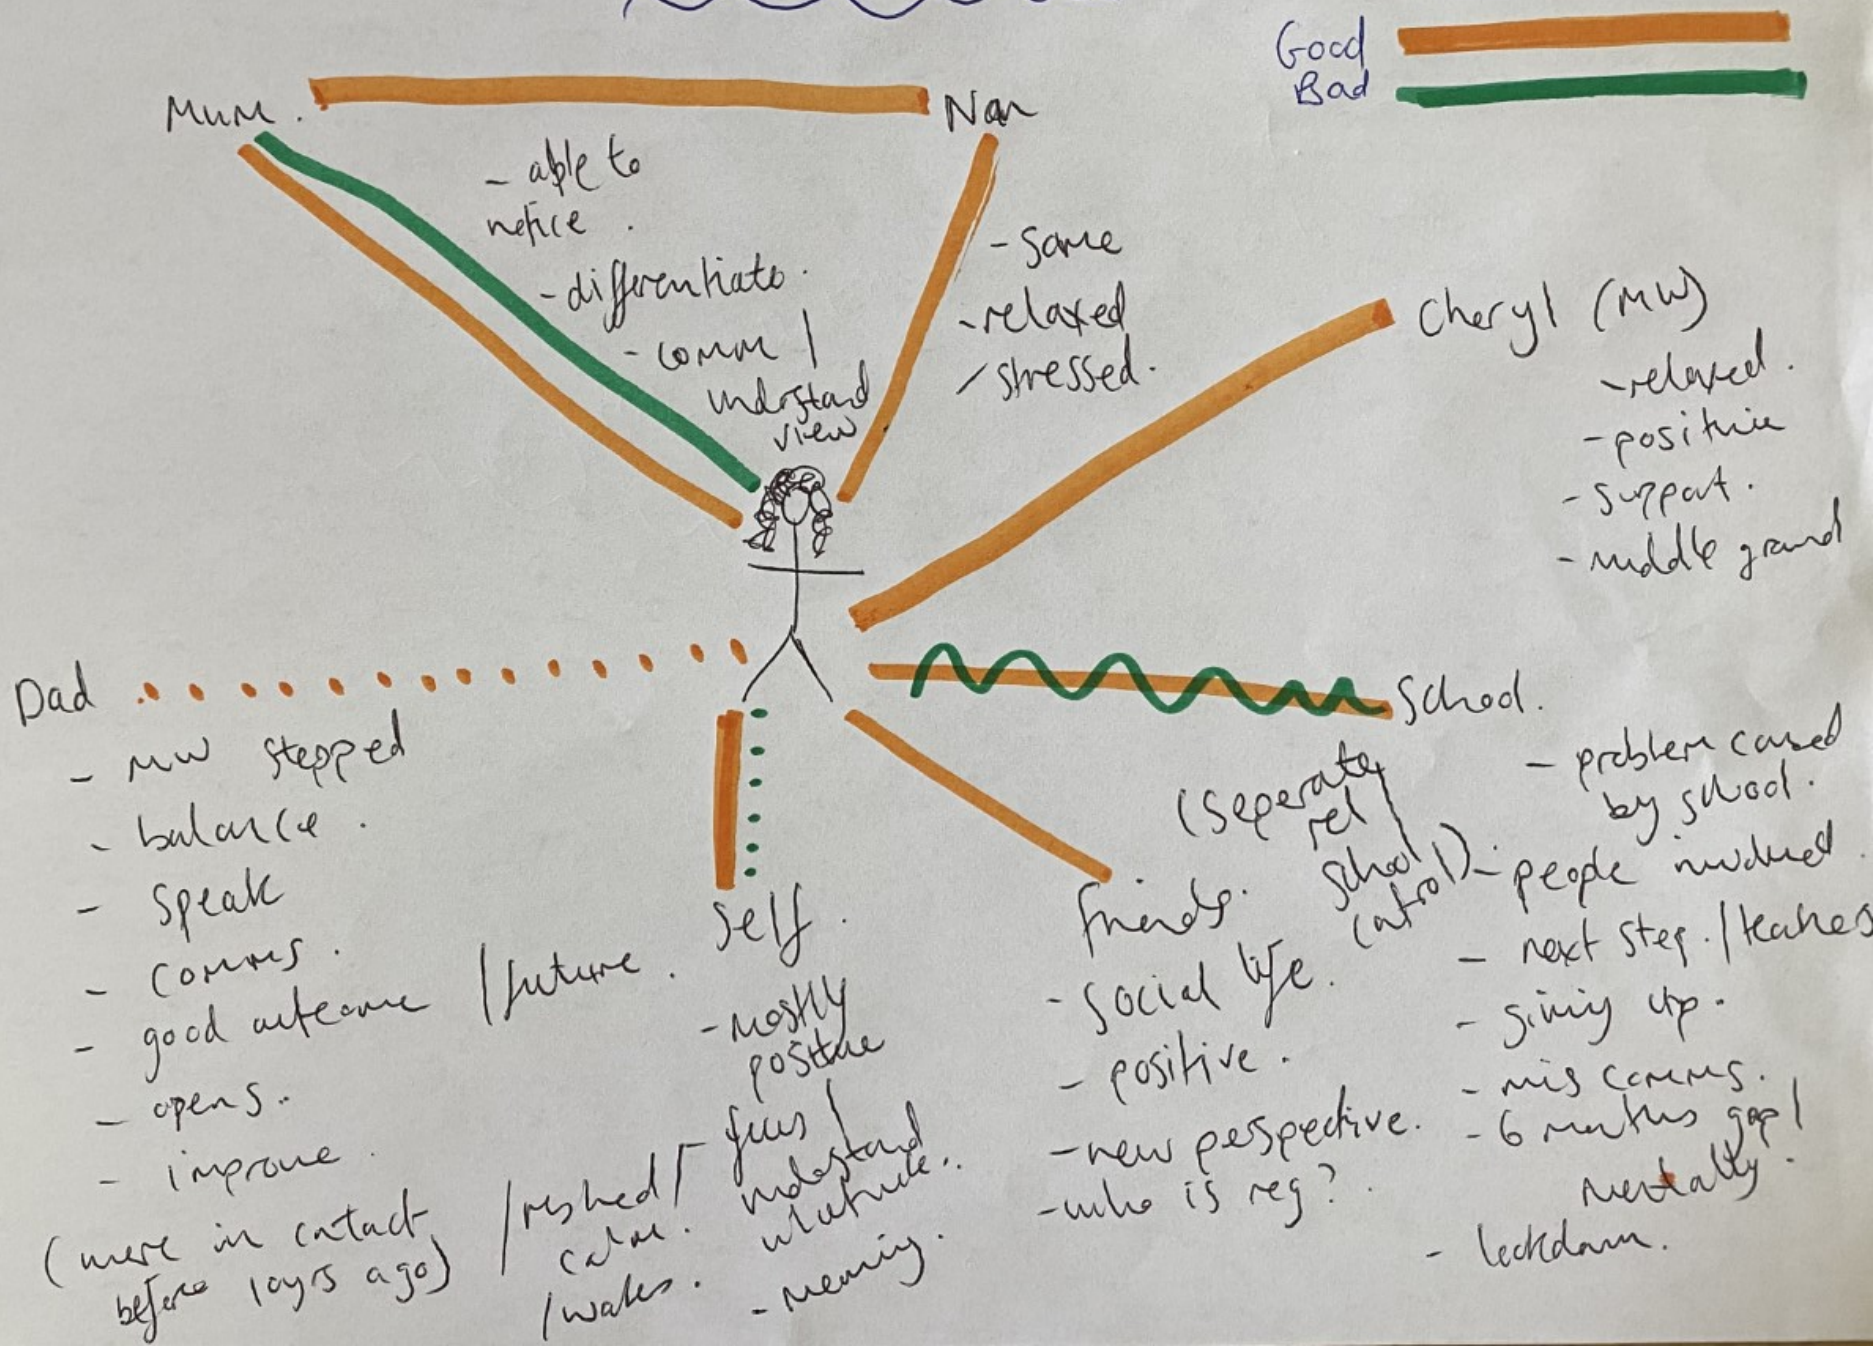 Good
Bad
Mum.
Nan
- able to
notice.
- differentiate.
- comm /
understand
view
- same
- relaxed
/ stressed.
Cheryl (MW)
- relaxed.
- positive
- support.
- middle ground
Dad
- MW stepped
- balance.
- speak
- comms.
- good outcome / future.
- opens.
- improve.
(were in contact
before 10yrs ago)
Self.
- mostly
positive
- focus /
understand
- meaning.
/ calm.
Friends.
- social life.
- positive.
- new perspective.
- who is reg?.
School.
(seperate
rel
school
control)
- problem caused
by school.
- people involved.
- next step. / teachers
- giving up.
- mis comms.
- 6 months gap /
mentally.
- lockdown.